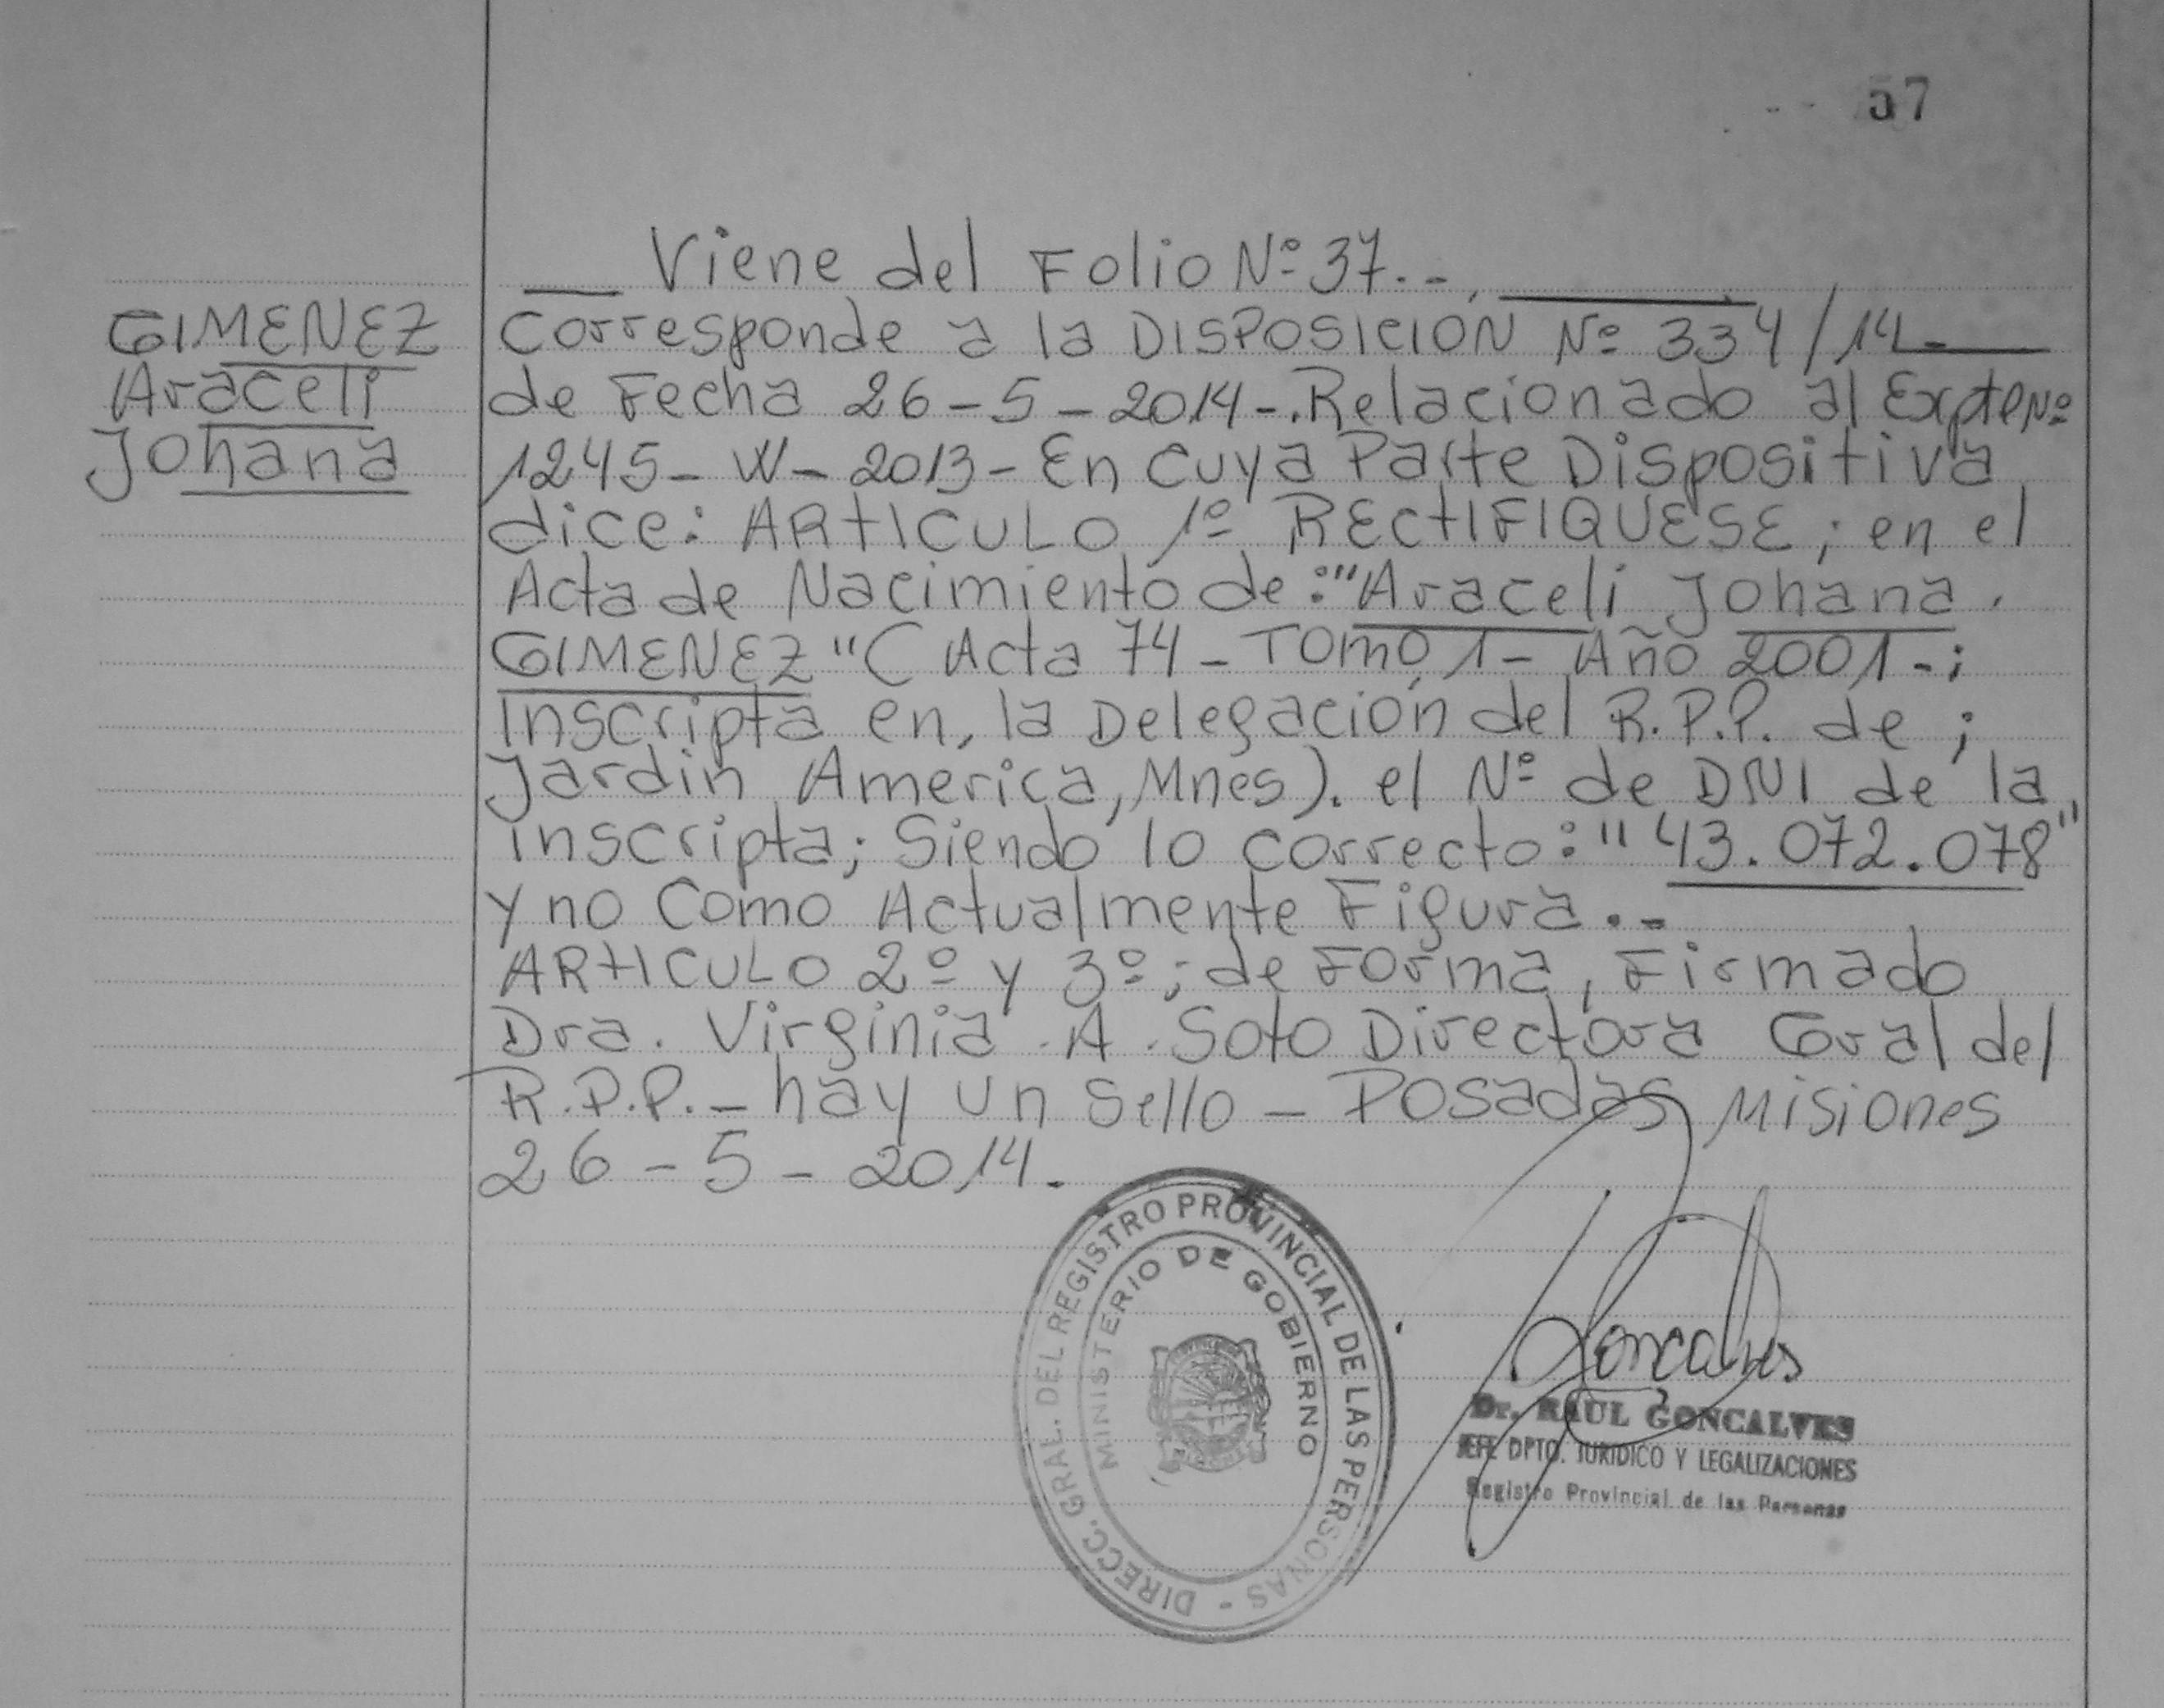 57
Viene del Folio Nº 37.-
GIMENEZ
Araceli
Johana
Corresponde a la DISPOSICION Nº 334/14-
de Fecha 26-5-2014-. Relacionado al Expte Nº
1245- W- 2013- En cuya Parte Dispositiva
dice: ARTICULO 1º RECTIFIQUESE; en el
Acta de Nacimiento de: "Araceli Johana
GIMENEZ" (Acta 74- Tomo 1- Año 2001-;
Inscripta en, la Delegación del R.P.P. de;
Jardin America, Mnes). el Nº de DNI de la
inscripta; Siendo lo correcto: "43.072.078"
y no Como Actualmente Figura.-
ARTICULO 2º y 3º; de Forma, Firmado
Dra. Virginia A. Soto Directora Gral del
R.P.P.- hay un Sello - Posadas Misiones
26-5-2014.
DIRECC. GRAL. DEL REGISTRO PROVINCIAL DE LAS PERSONAS -
MINISTERIO DE GOBIERNO
Goncalves
Dr. RAUL GONCALVES
JEFE DPTO. JURIDICO Y LEGALIZACIONES
Registro Provincial de las Personas